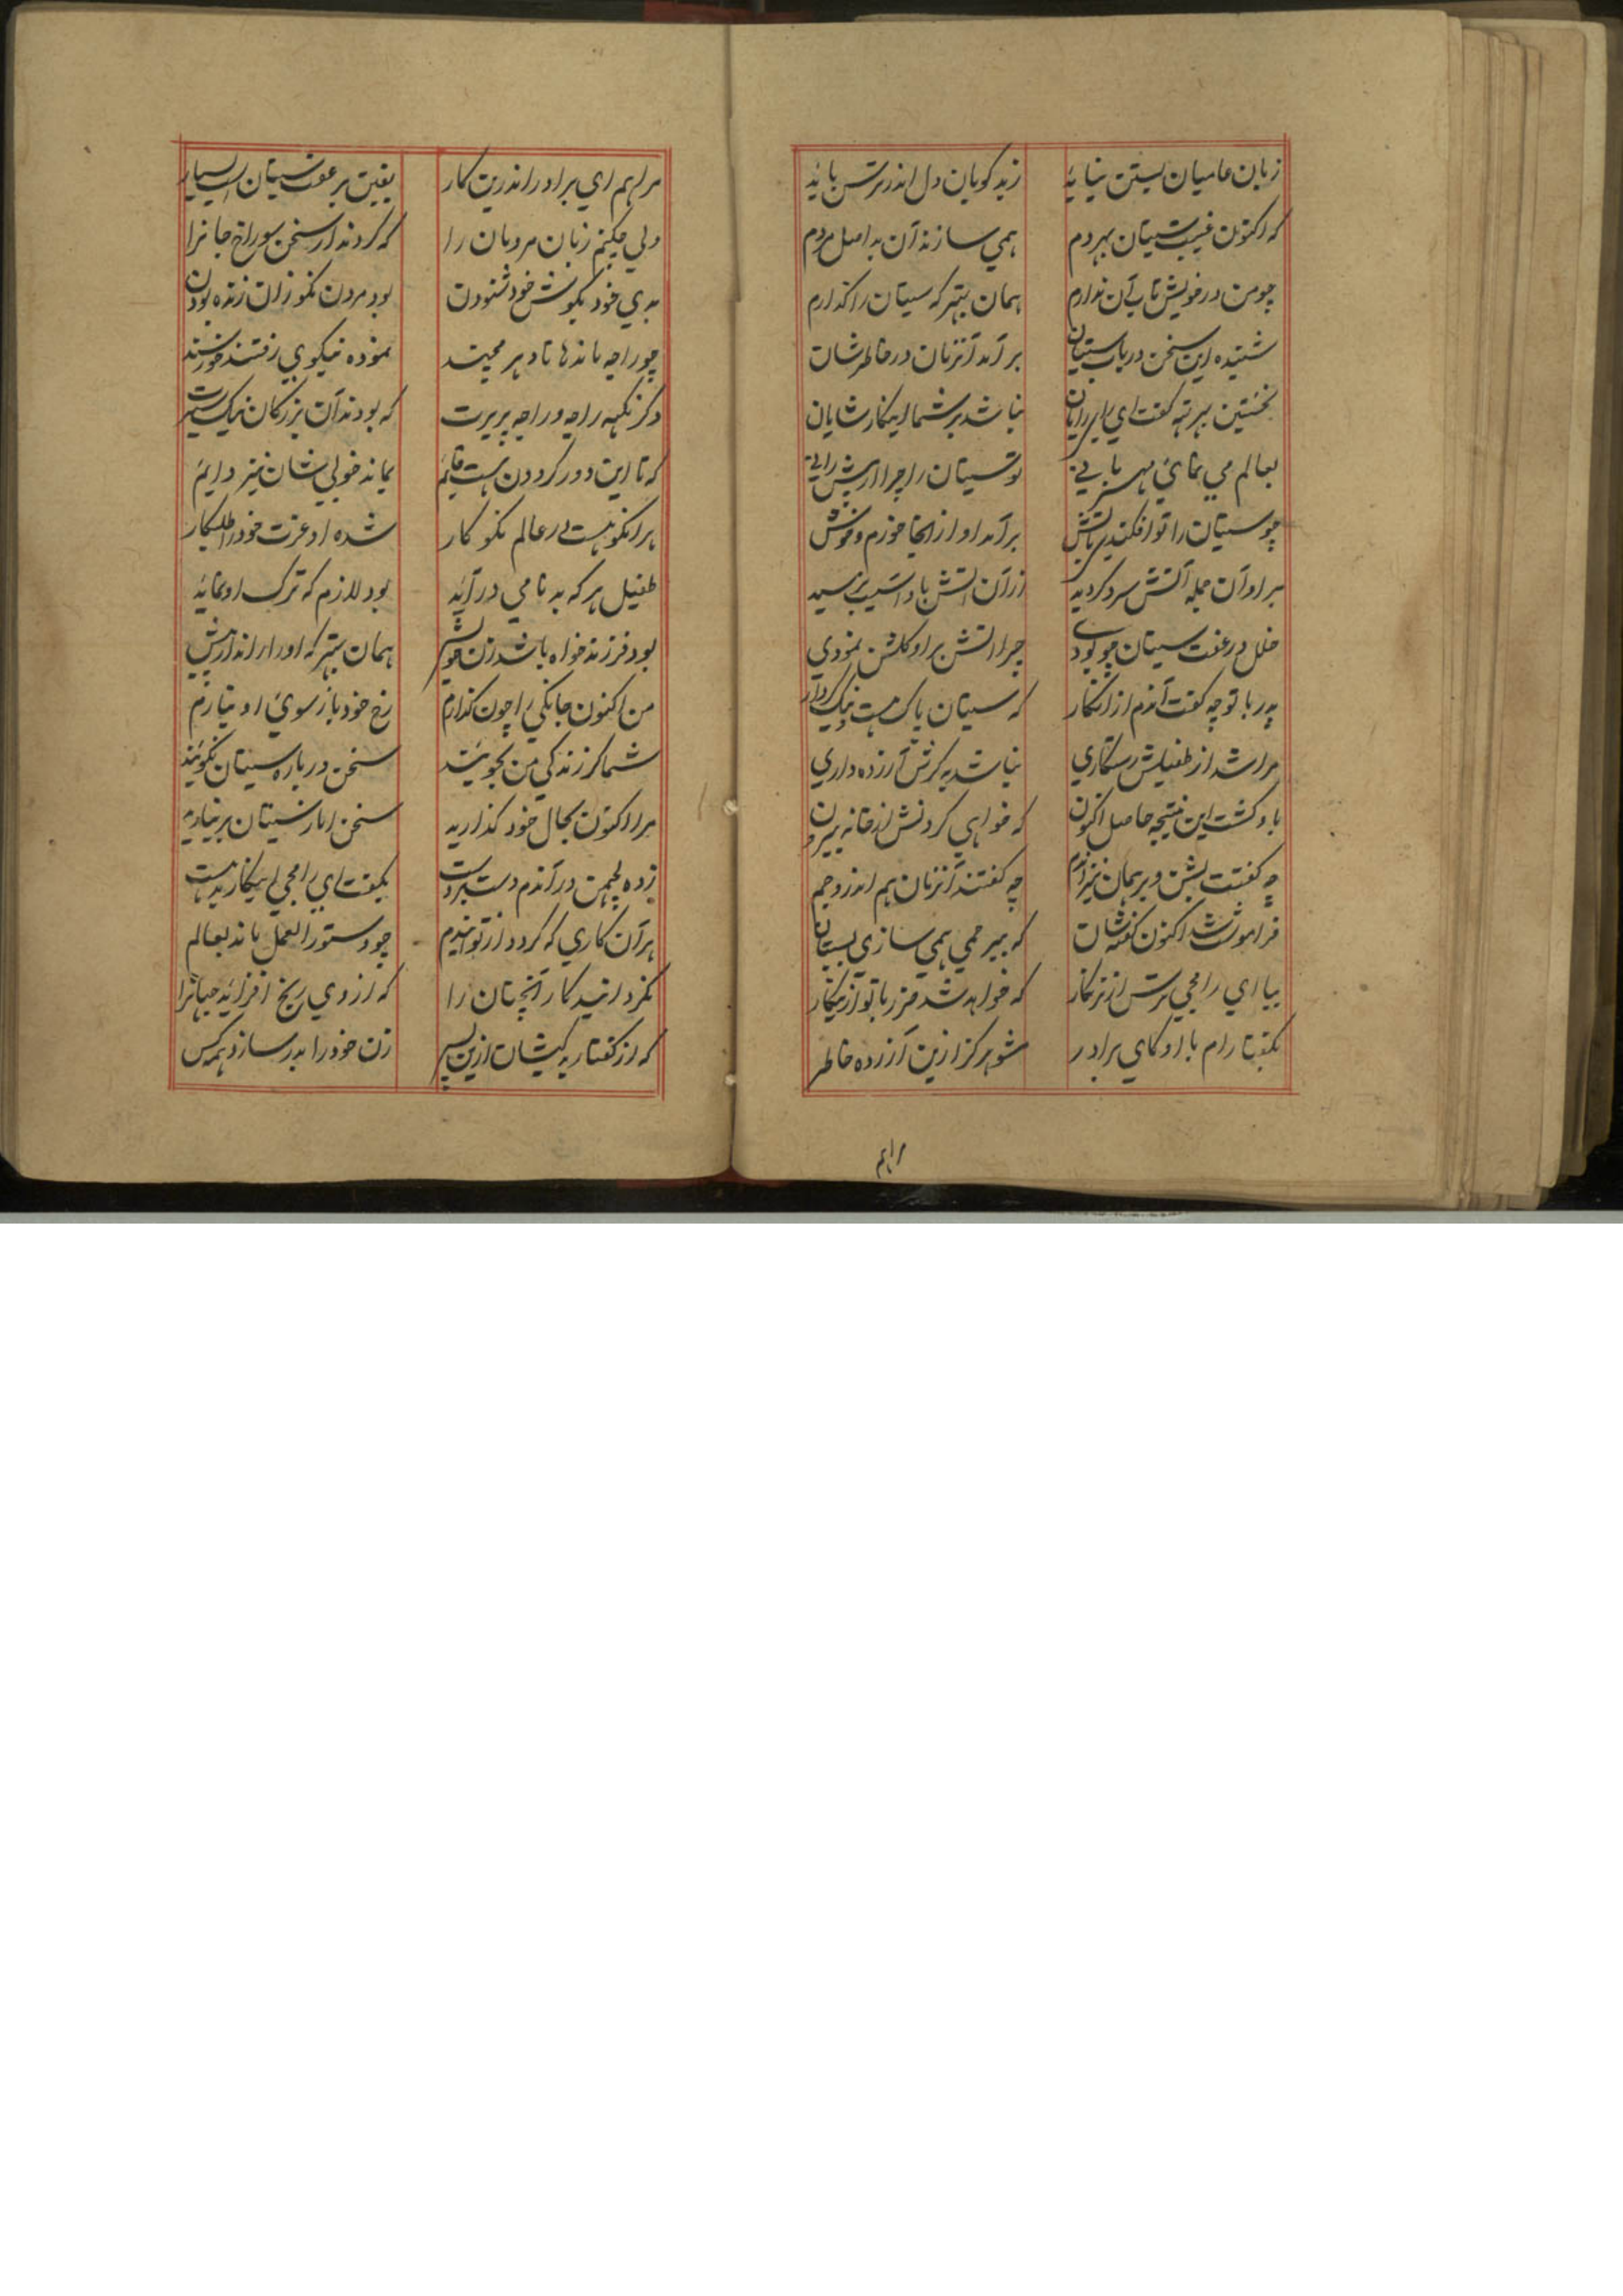 زبان عامیان بستن نیاید زبد کویان دل اندر ترس باید
که اکنون غیبت سیتان بهر دم همي سازند آن بد اصل مردم
چو من در خویش تاب آن ندارم همان بهتر که سیتان را کذارم
شنیده این سخن در باب سیتان بر آمد آنزمان در خاطر شان
نخستین برتهه کفت اي نباشد بر شما اینکار شایان
بعالم مي نمائي مهر باني تو سیتان را چرا از پیش راني
چو سیتان را تو افکندي بآتش بر آمد او از انجا خورم و خوش
بر او آن جمله آتش سرد کردید زر آن آتش باو آسیب نرسید
خلل در عفت سیتان چو بودي چرا آتش بر او کلشن نمودي
پدر با تو چه کفت آندم از انکار که سیتان پاک هست و نیک کردار
مرا شد از طفیلش رستکاري نباشد به کزش آزرده داري
باو کشت این نتیجه حاصل اکنون که خواهي کردنش از خانه بیرون
چه کفتت بشن و برهمان نیز آندم چه کفتند آنزمان هم اندر و جم
فراموشت شد اکنون کفته شان که بیرحمي همي سازي بسیتان
بیا اي رامجي ترس از نرنکار که خواهد شد ضرر با تو ازینکار
بکفتا رام با او کاي برادر مشو هرکز ازین آزرده خاطر
مراهم
مرا هم اي برادر اندرین کار یقین بر عفت سیتان است بسیار
ولي چکنم زبان مردمان را که کردند از سخن سوراخ جانرا
بدي خود بکوش خود شنودن بود مردن نکو زان زنده بودن
چو راجه ماندهاتا و هرمچند نموده نیکوي رفتند خورسند
دکر نکهه راجه و راجه پریرت که بودند آن بزرکان نیک سیرت
که تا این دور کردون هست قایم بماند خوبي شان نیز دایم
هر انکو هست در عالم نکو کار شده او عزت خود را طلبکار
طفیل هر که بد نامي در آید بود لازم که ترک او نماید
بود فرزند خواه باشد زن خویش همان بهتر که او را راند از پیش
من اکنون جانکي را چون کذارم رخ خود باز سوي او نیارم
شما کر زندکي من بجویند سخن در باره سیتان نکویند
مرا اکنون بحال خود کذارید سخن از باز سیتان بر نیارید
زده لچهمن در آندم دست بر دست بکفت اي رامجي اینکار بد هست
هر آن کاري که کردد از تو ایندم چو دستور العمل ماند بعالم
نکردانید کار آنچنان را که از وي رنج افزاید جهانرا
که از کفتار بد کیشان ازین پس زن خود را بدر سازد همه کس